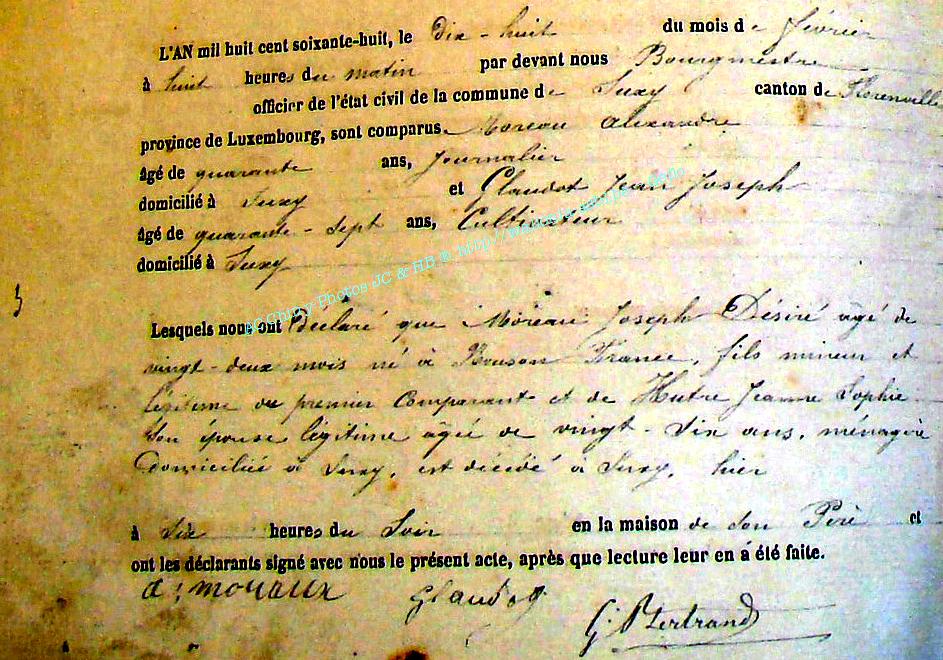 L'AN mil huit cent soixante-huit, le dix-huit du mois de février
à huit heures du matin par devant nous Bourgmestre
officier de l'état civil de la commune de Suxy canton de Florenville
province de Luxembourg, sont comparus Moreau Alexandre
âgé de quarante ans, Journalier
domicilié à Suxy et Claudot Jean Joseph
âgé de quarante-sept ans, Cultivateur
domicilié à Suxy
Lesquels nous ont déclaré que Moreau Joseph Désiré âgé de
vingt-deux mois né à France, fils mineur et
légitime du premier Comparant et de Hutre Jeanne Sophie
son épouse légitime âgée de vingt-six ans, ménagère
domiciliée à Suxy, est décédé à Suxy, hier
à Six heures du Soir en la maison de son Père et
ont les déclarants signé avec nous le présent acte, après que lecture leur en á été faite.
Claudot
G. Bertrand
Photos JC & HB © http://